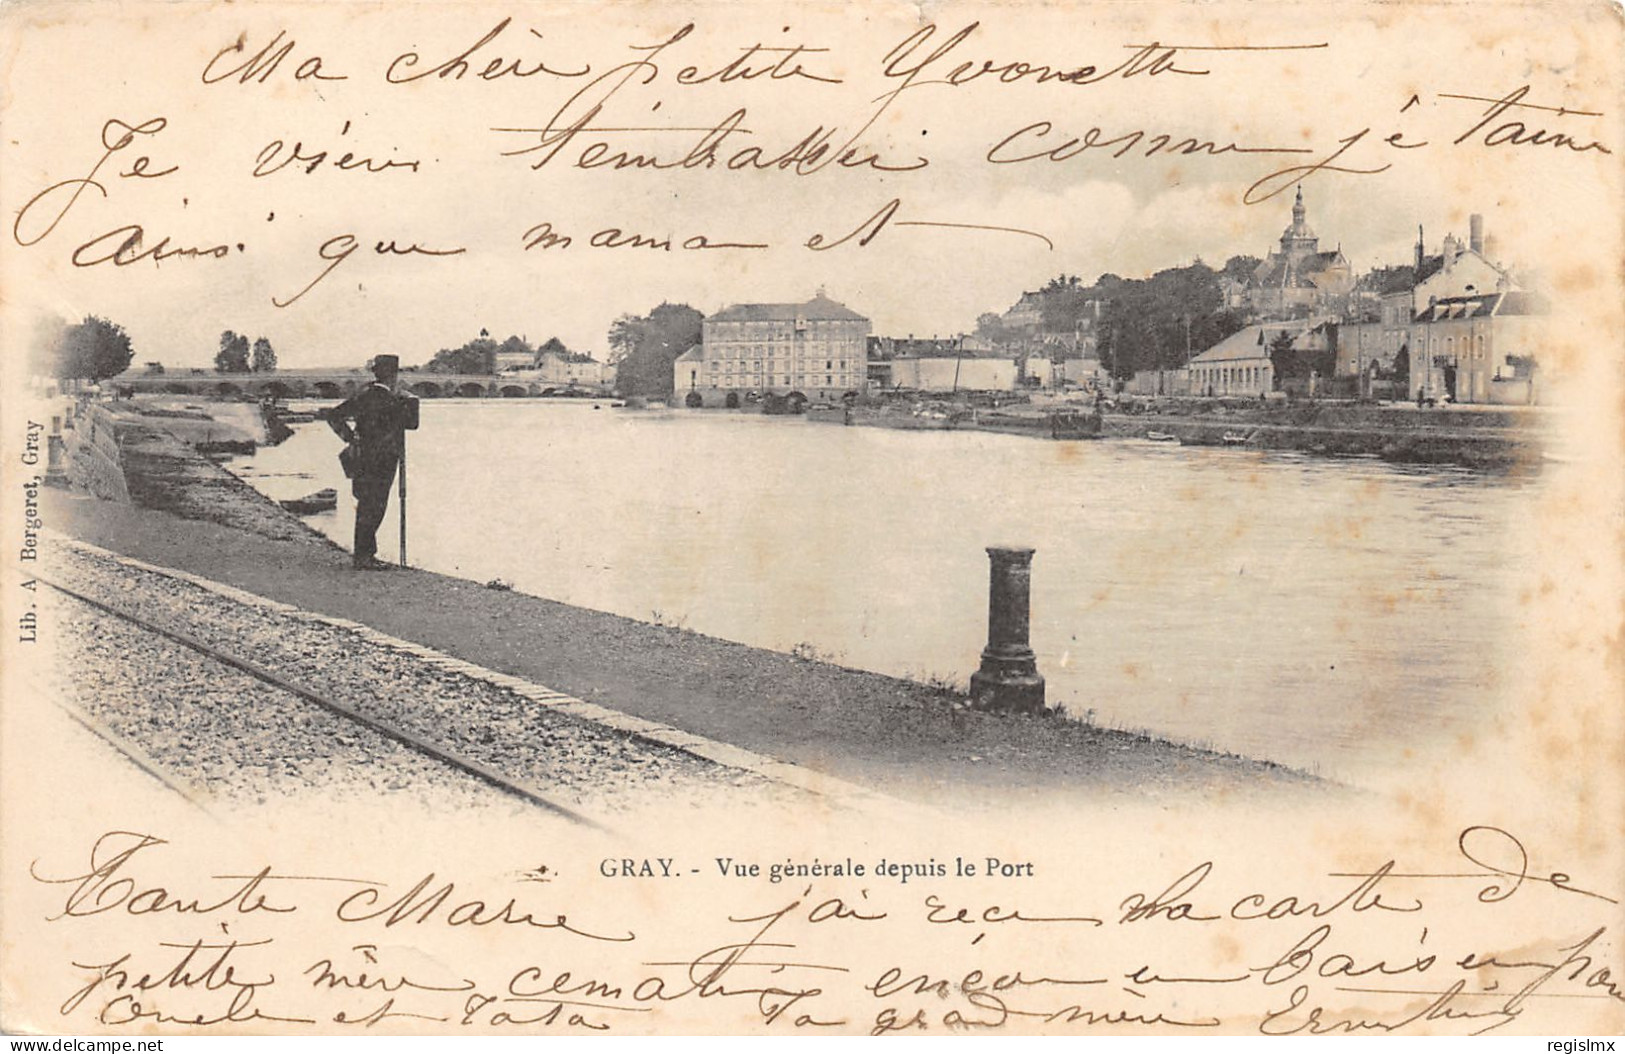 Ma chère petite Yvonette
Je viens t'embrasser comme je t'aime
ainsi que mama et
Lib. A Bergeret, Gray
GRAY. - Vue générale depuis le Port
Tante Marie j'ai reçu la carte de
petite mère ce matin encore un baiser pour
Oncle et Tata Ta grand mère Ernestine
delcampe.net
regislmx